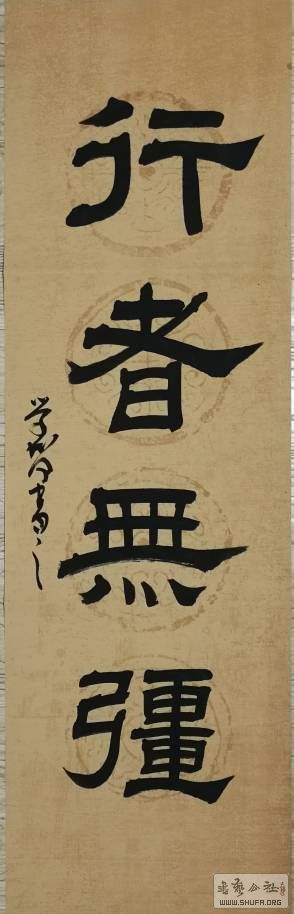 行者無彊
書藝公社
WWW.SHUFA.ORG